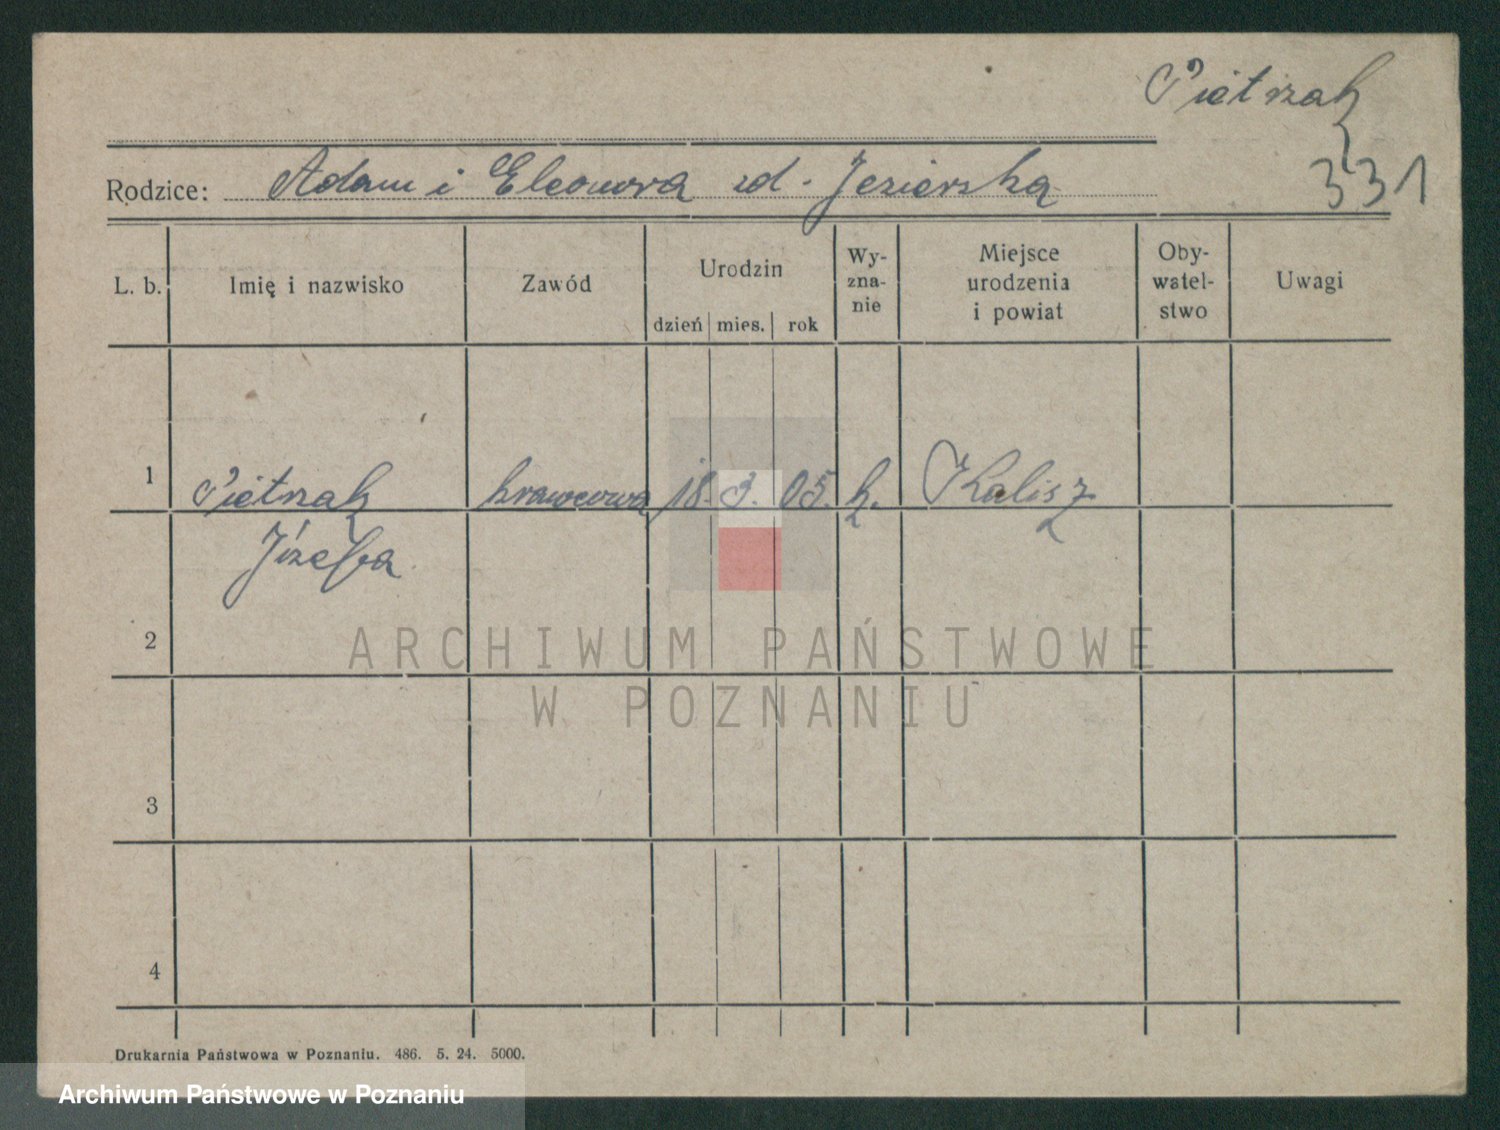 Pietrzak
331
Rodzice: Adam i Eleonora zd. Jezierska
L. b. Imię i nazwisko Zawód Urodzin dzień mies. rok Wy-zna-nie Miejsce urodzenia i powiat Oby-watel-stwo Uwagi
1 Pietrzak krawcowa 18. 3. 05. k. Kalisz
Józefa
2
3
4
Drukarnia Państwowa w Poznaniu. 486. 5. 24. 5000.
ARCHIWUM PAŃSTWOWE
W POZNANIU
Archiwum Państwowe w Poznaniu